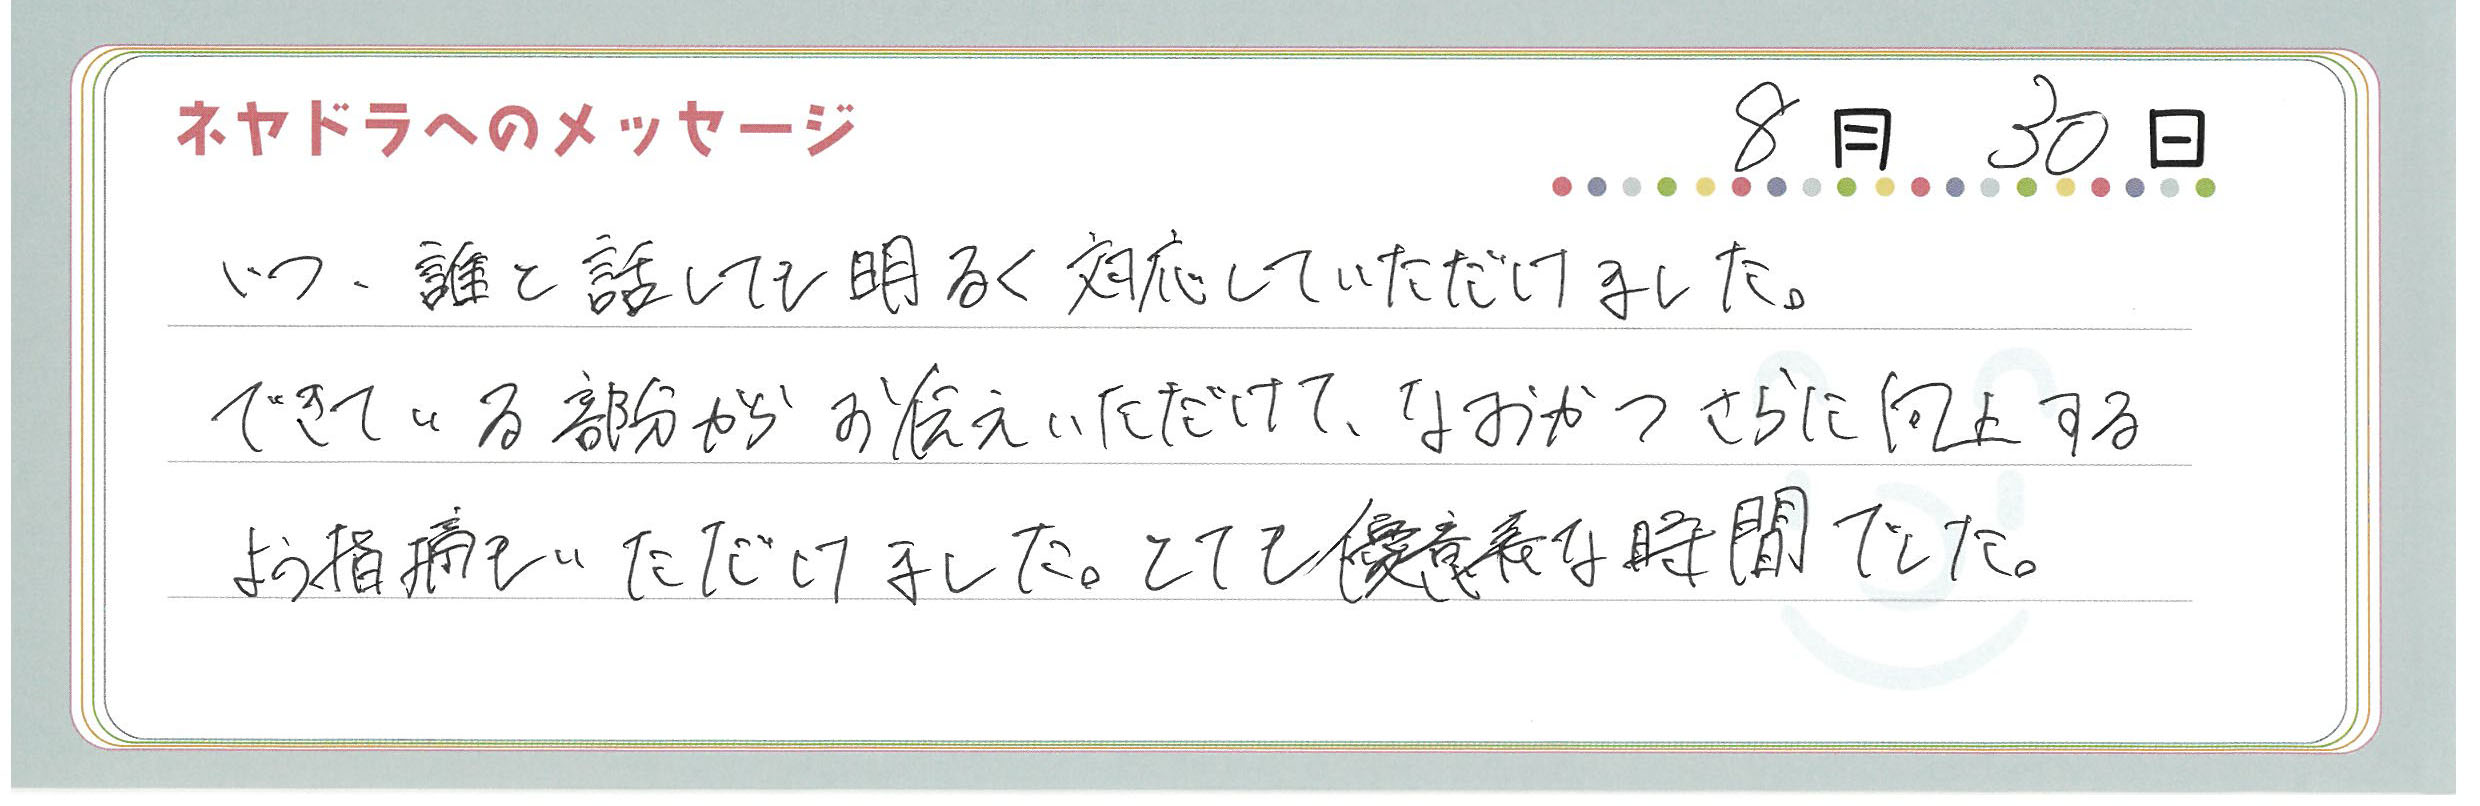 ネヤドラへのメッセージ
8月 30日
いつ、誰と話しても明るく対応していただけました。
できている部分からお伝えいただけて、なおかつさらに向上する
よう指摘もいただけました。とても な時間でした。